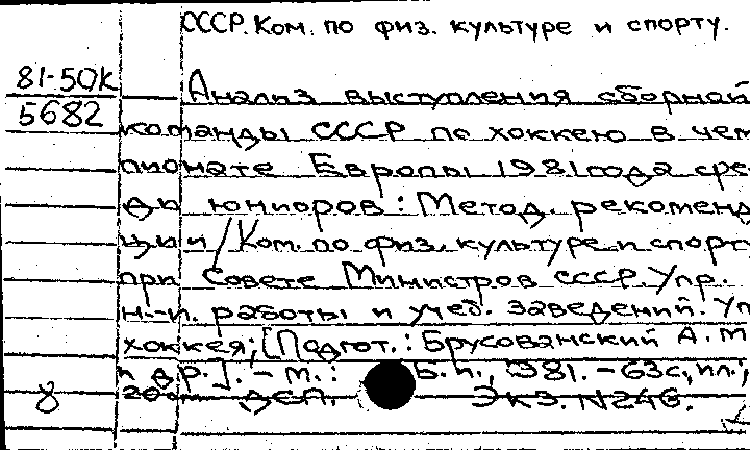 СССР. Ком. по физ. культуре и спорту.
81-50к
5682
Анализ выступления сборной
команды СССР по хоккею в чем
пионате Европы 1981 года сре-
ди юниоров: Метод. рекоменд
ции / Ком. по физ. культуре и спорт
при Совете Министров СССР. Упр.
н.-и. работы и учеб. заведений. Уп
хоккея; [Подгот.: Брусованский А. М
и др.]. - М.: Б. и., 1981. - 63 с., ил.;
20 см
ДСП. Экз. N246.
8